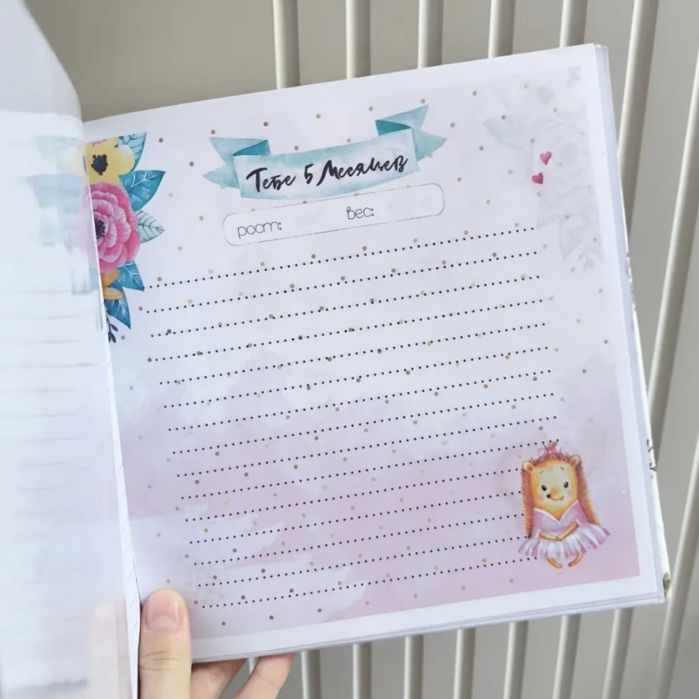 Тебе 5 Месяцев
рост: вес: